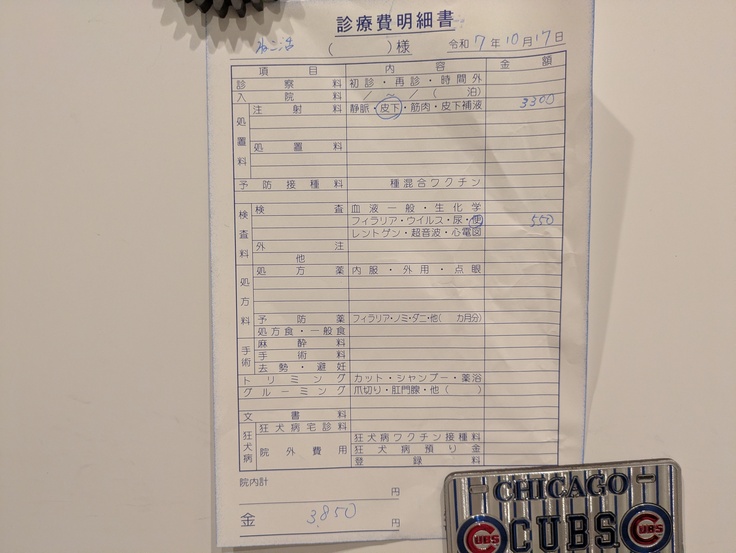 診療費明細書
ねこ活 ( ) 様 令和 7 年 10 月 17 日
項目 内容 金額
診察料 初診・再診・時間外
入院料 / ~ / ( 泊)
処置料 注射料 静脈・皮下・筋肉・皮下補液 3300
処置料
予防接種料 種混合ワクチン
検査料 検査 血液一般・生化学
フィラリア・ウイルス・尿・便 550
レントゲン・超音波・心電図
外注
他
処方料 処方薬 内服・外用・点眼
予防薬 フィラリア・ノミ・ダニ・他( カ月分)
処方食・一般食
手術 麻酔料
手術料
去勢・避妊
トリミング カット・シャンプー・薬浴
グルーミング 爪切り・肛門腺・他( )
文書料
狂犬病 狂犬病宅診料
院外費用 狂犬病ワクチン接種料
狂犬病預り金
登録料
院内計 円
金 3,850 円
CHICAGO
CUBS
UBS
UBS